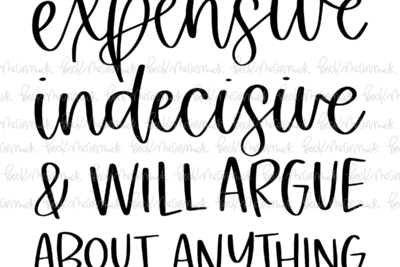 expensive
indecisive
& WILL ARGUE
ABOUT ANYTHING